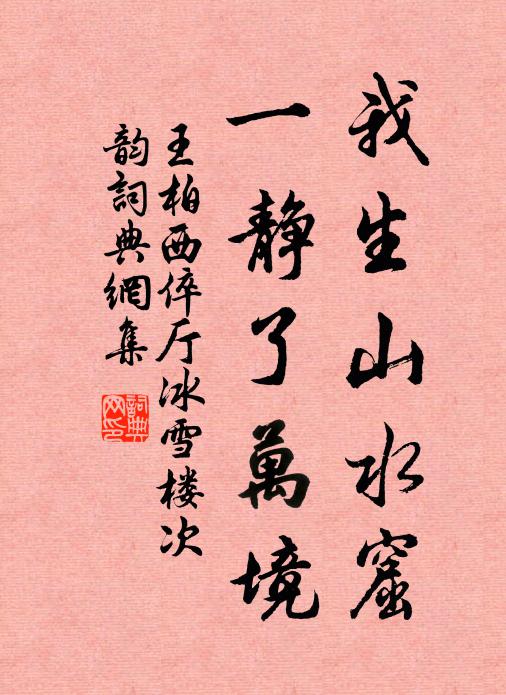 我生山水窟
一静了萬境
王柏西倅厅冰雪楼次
韵詞典網集
詞典
网印